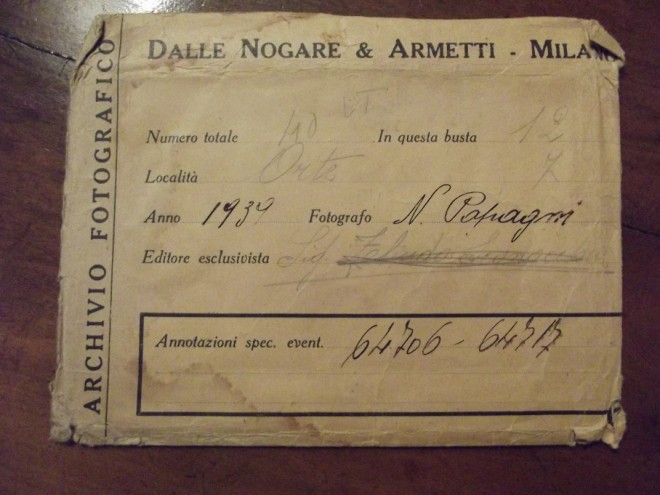 ARCHIVIO FOTOGRAFICO
DALLE NOGARE & ARMETTI - MILANO
Numero totale 140 In questa busta 12
Località Orte 7
Anno 1939 Fotografo N. Papagni
Editore esclusivista Sig.
Annotazioni spec. event. 64706 - 64717